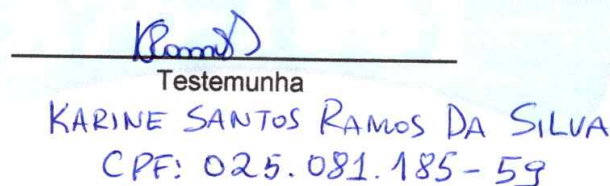 Testemunha
KARINE SANTOS RAMOS DA SILVA
CPF: 025.081.185-59